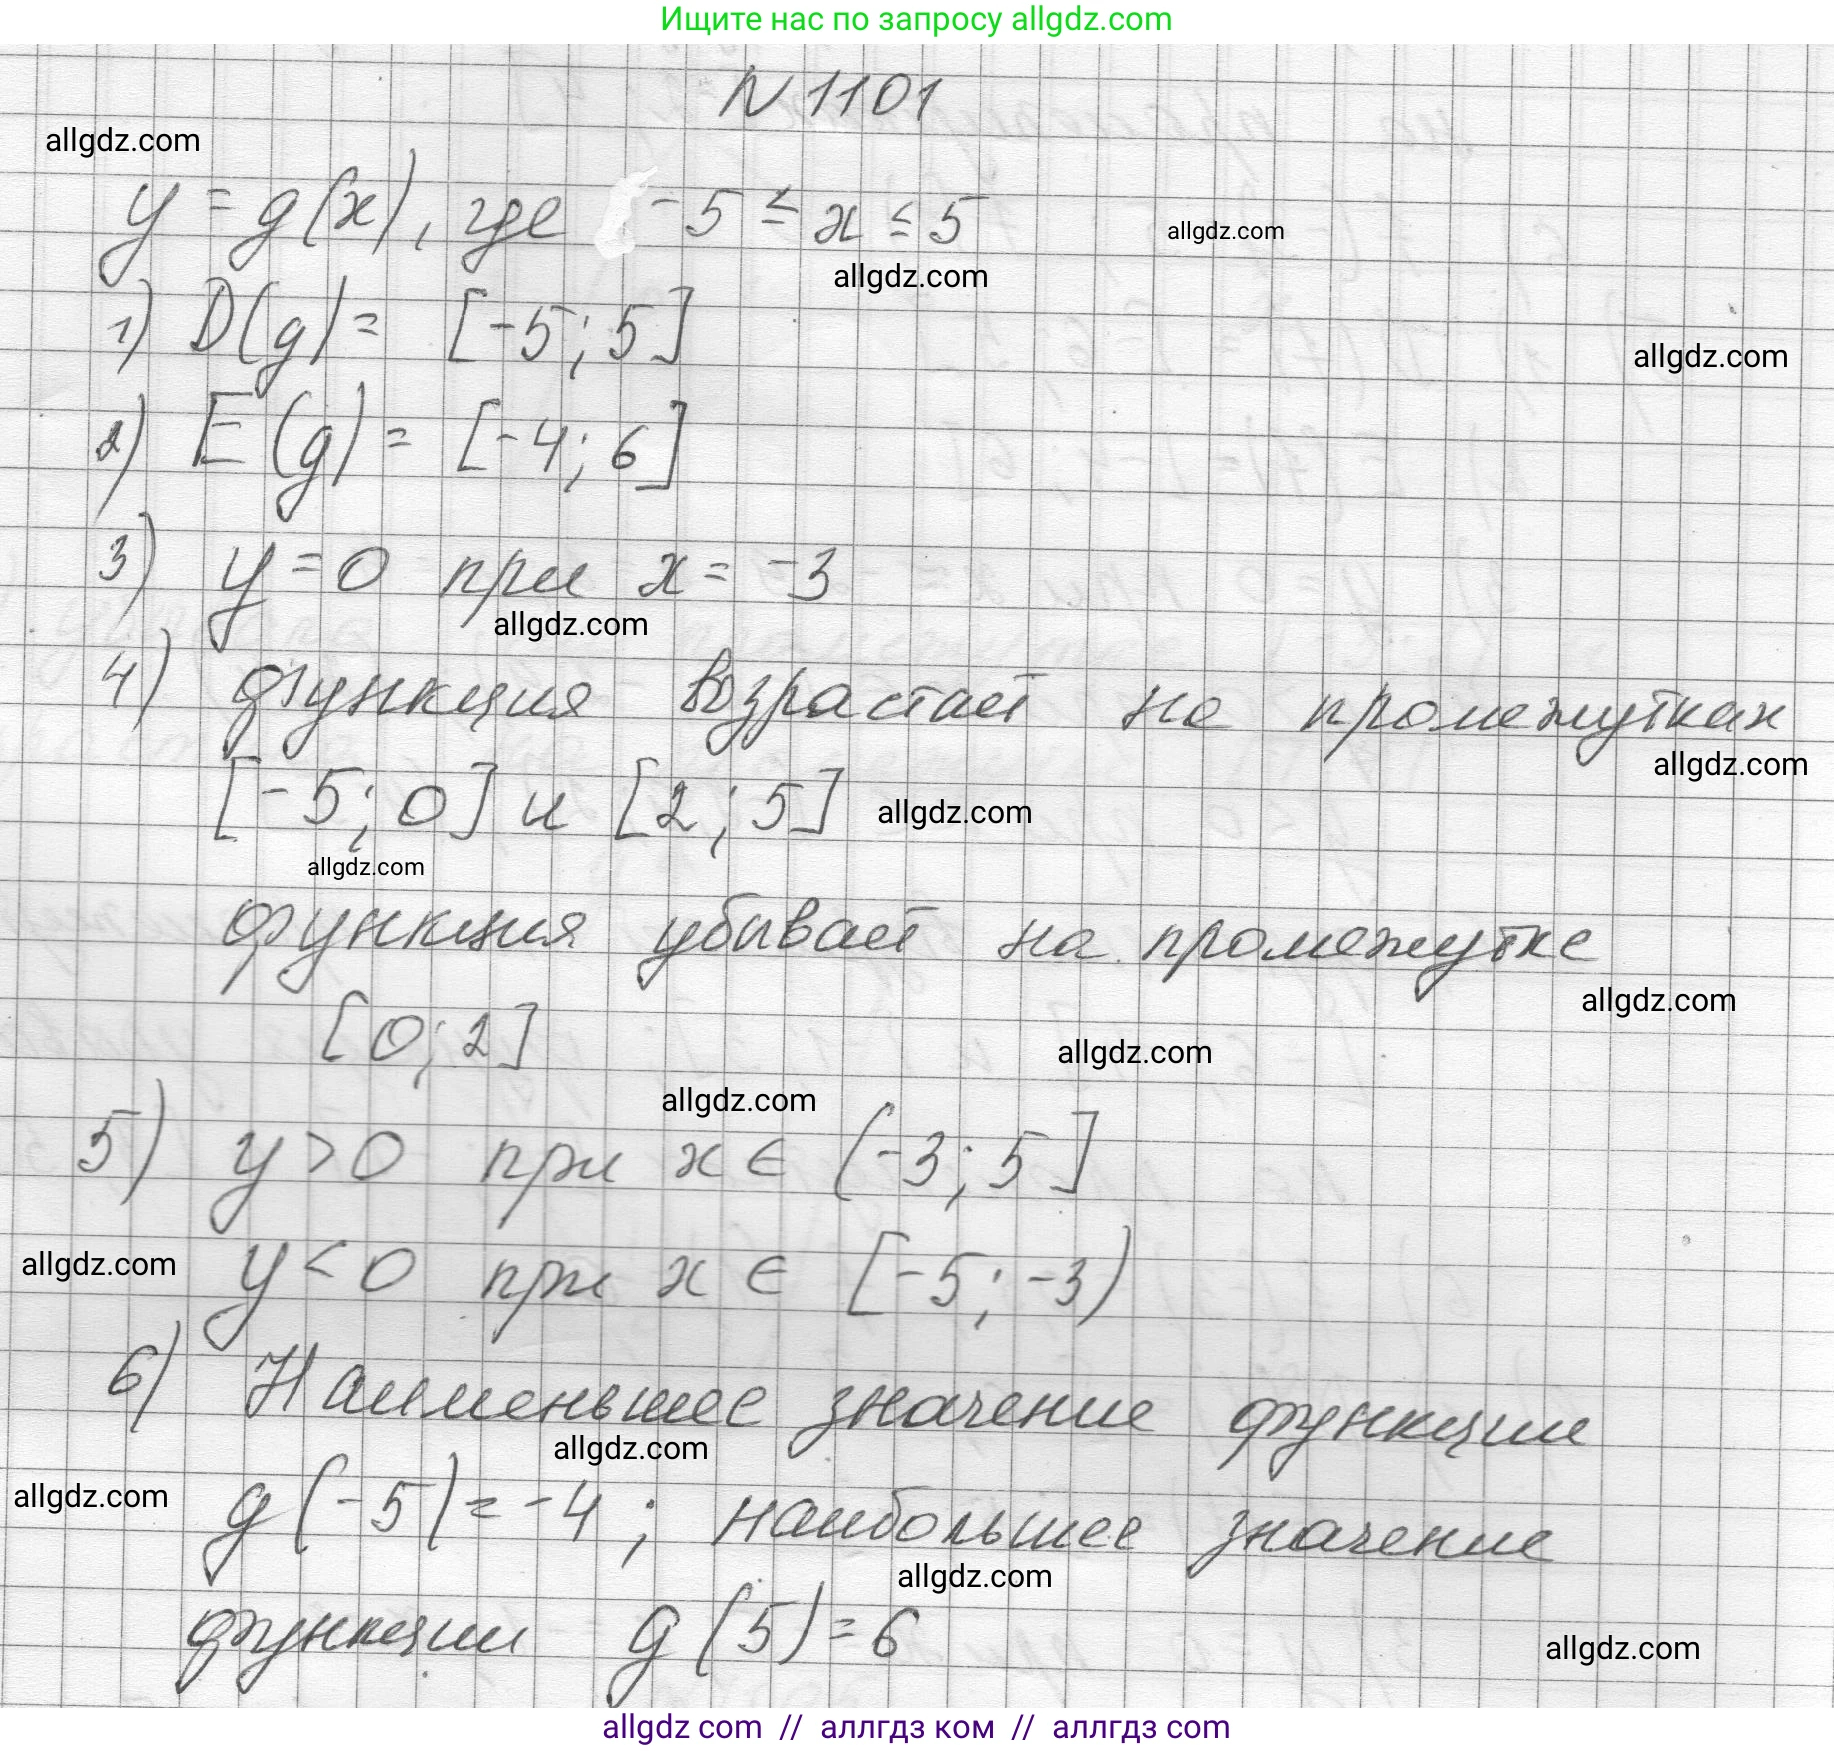 Ищите нас по запросу allgdz.com
N 1101
allgdz.com
y = g(x), где -5 ≤ x ≤ 5
allgdz.com
allgdz.com
1) D(g) = [-5; 5]
allgdz.com
2) E(g) = [-4; 6]
3) y = 0 при x = -3
allgdz.com
4) функция возрастает на промежутках
allgdz.com
[-5; 0] и [2; 5]
allgdz.com
allgdz.com
функция убывает на промежутке
allgdz.com
[0; 2]
allgdz.com
allgdz.com
5) y > 0 при x ∈ (-3; 5]
allgdz.com
y < 0 при x ∈ [-5; -3)
6) Наименьшее значение функции
allgdz.com
allgdz.com
g(-5) = -4; наибольшее значение
allgdz.com
функции g(5) = 6
allgdz.com
allgdz com // аллгдз ком // аллгдз com